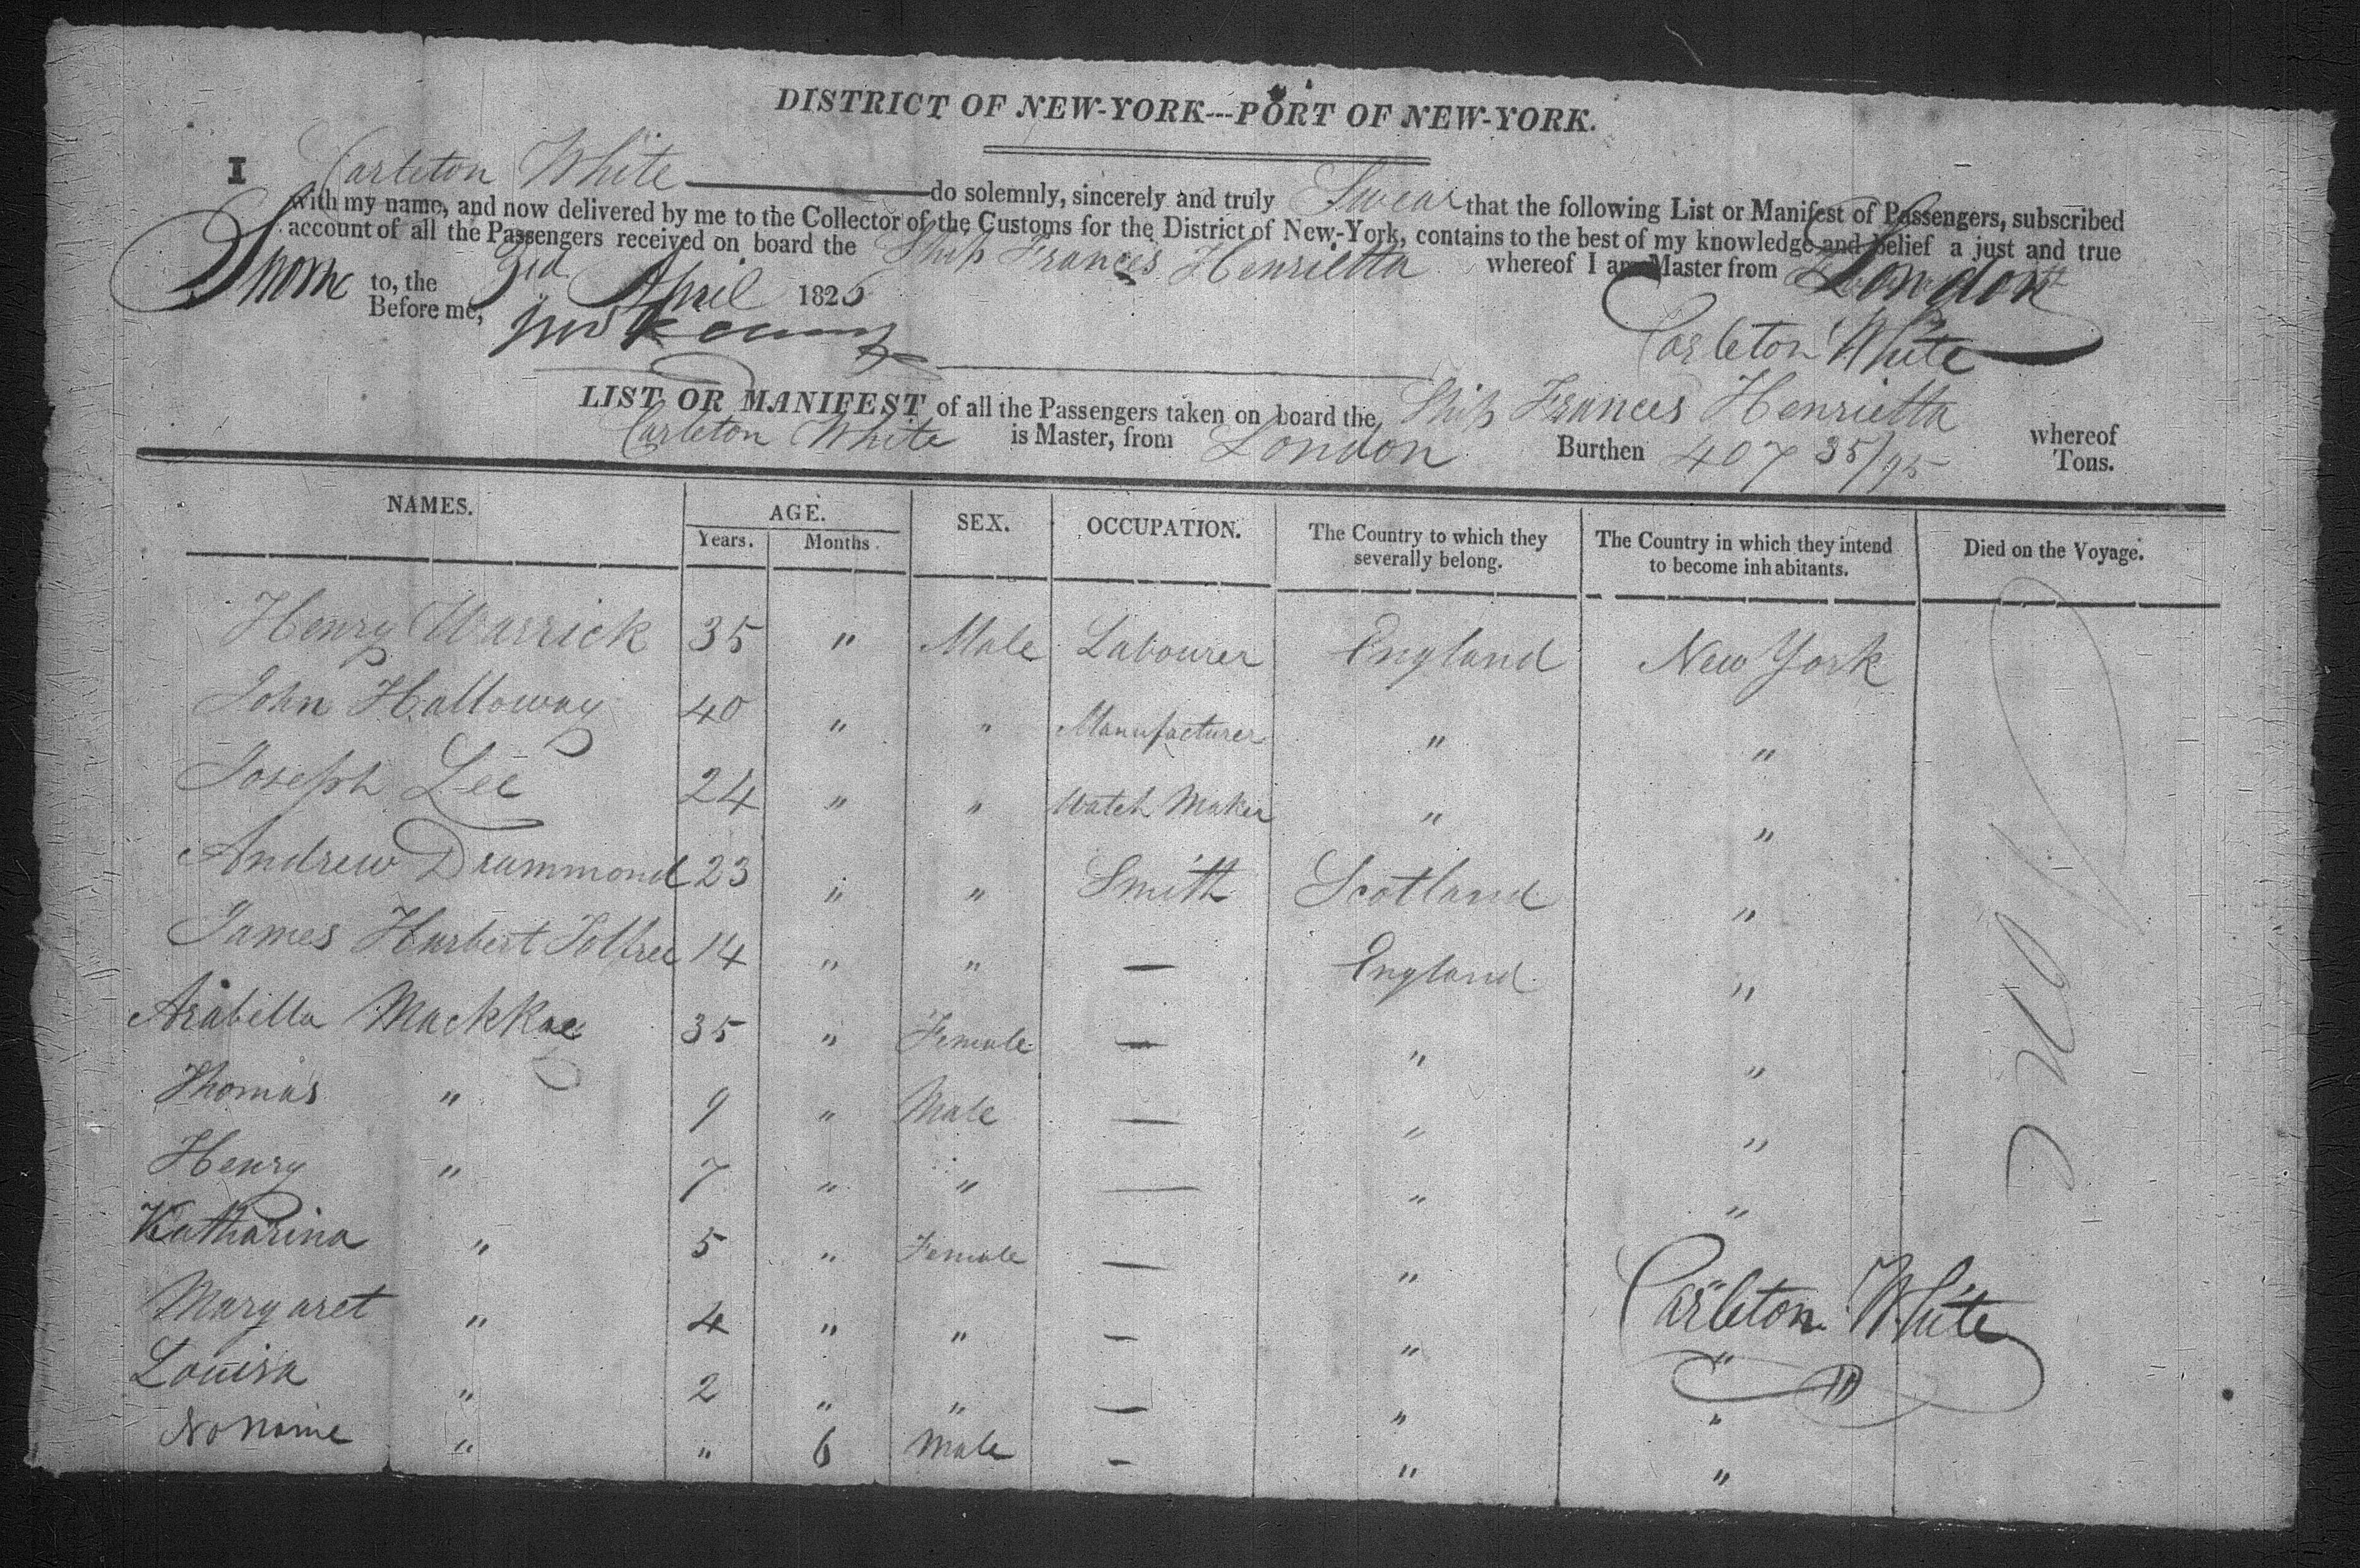 DISTRICT OF NEW-YORK---PORT OF NEW-YORK.
I Carleton White do solemnly, sincerely and truly Swear that the following List or Manifest of Passengers, subscribed
with my name, and now delivered by me to the Collector of the Customs for the District of New-York, contains to the best of my knowledge and belief a just and true
account of all the Passengers received on board the Ship Frances Henrietta whereof I am Master from London
Sworn to, the 3rd April 1826
Before me,
Carleton White
LIST OR MANIFEST of all the Passengers taken on board the Ship Frances Henrietta whereof
Carleton White is Master, from London Burthen 407 35/95 Tons.
NAMES. AGE. SEX. OCCUPATION. The Country to which they severally belong. The Country in which they intend to become inhabitants. Died on the Voyage.
Years. Months.
Henry Warrick 35 " Male Labourer England New York
John Halloway 40 " " Manufacturer " "
Joseph Lee 24 " " Watch Maker " "
Andrew Drummond 23 " " Smith Scotland "
James Hurbert 14 " " — England "
Arabella MackKay 35 " Female — " "
Thomas " 9 " Male — " "
Henry " 7 " " — " "
Katharina " 5 " Female — "
Margaret " 4 " " — " "
Louisa " 2 " " — " "
No Name " " 6 Male — " "
Carleton White